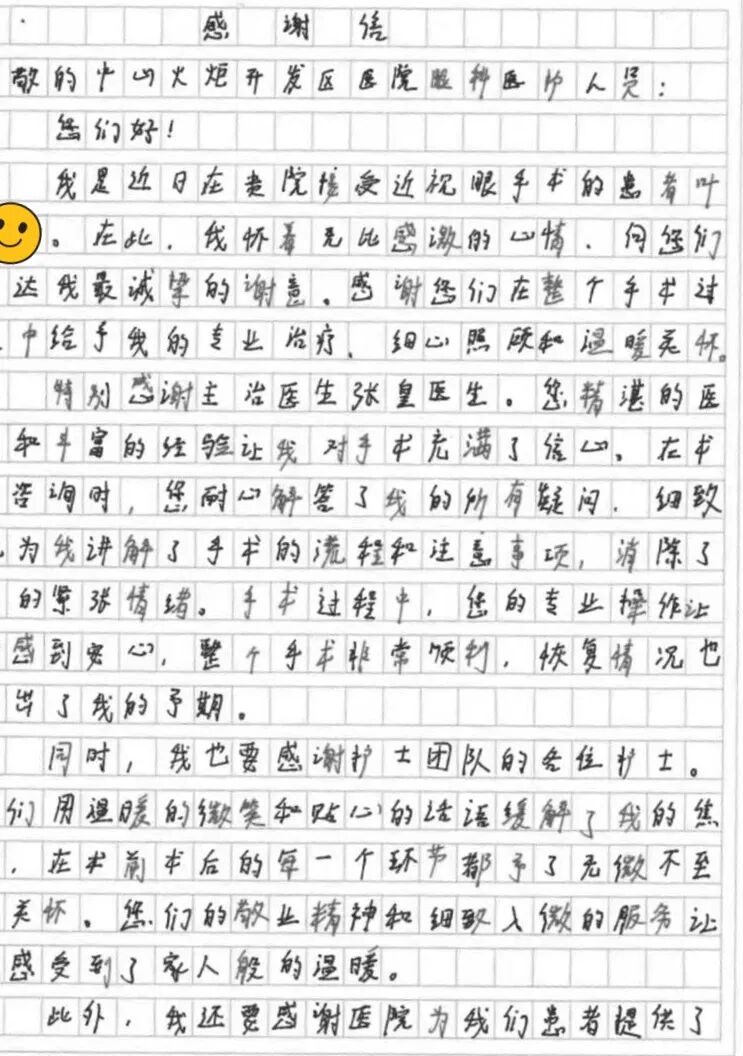 感谢信
敬的中山火炬开发区医院眼科医护人员：
您们好！
我是近日在贵院接受近视眼手术的患者叶
。在此，我怀着无比感激的心情，向您们
达我最诚挚的谢意。感谢您们在整个手术过
中给予我的专业治疗、细心照顾和温暖关怀。
特别感谢主治医生张皇医生。您精湛的医
和丰富的经验让我对手术充满了信心。在术
咨询时，您耐心解答了我的所有疑问，细致
为我讲解了手术的流程和注意事项，消除了
的紧张情绪。手术过程中，您的专业操作让
感到安心，整个手术非常顺利，恢复情况也
出了我的予期。
同时，我也要感谢护士团队的各位护士。
们用温暖的微笑和贴心的话语缓解了我的焦
，在术前术后的每一个环节都予了无微不至
关怀。您们的敬业精神和细致入微的服务让
感受到了家人般的温暖。
此外，我还要感谢医院为我们患者提供了